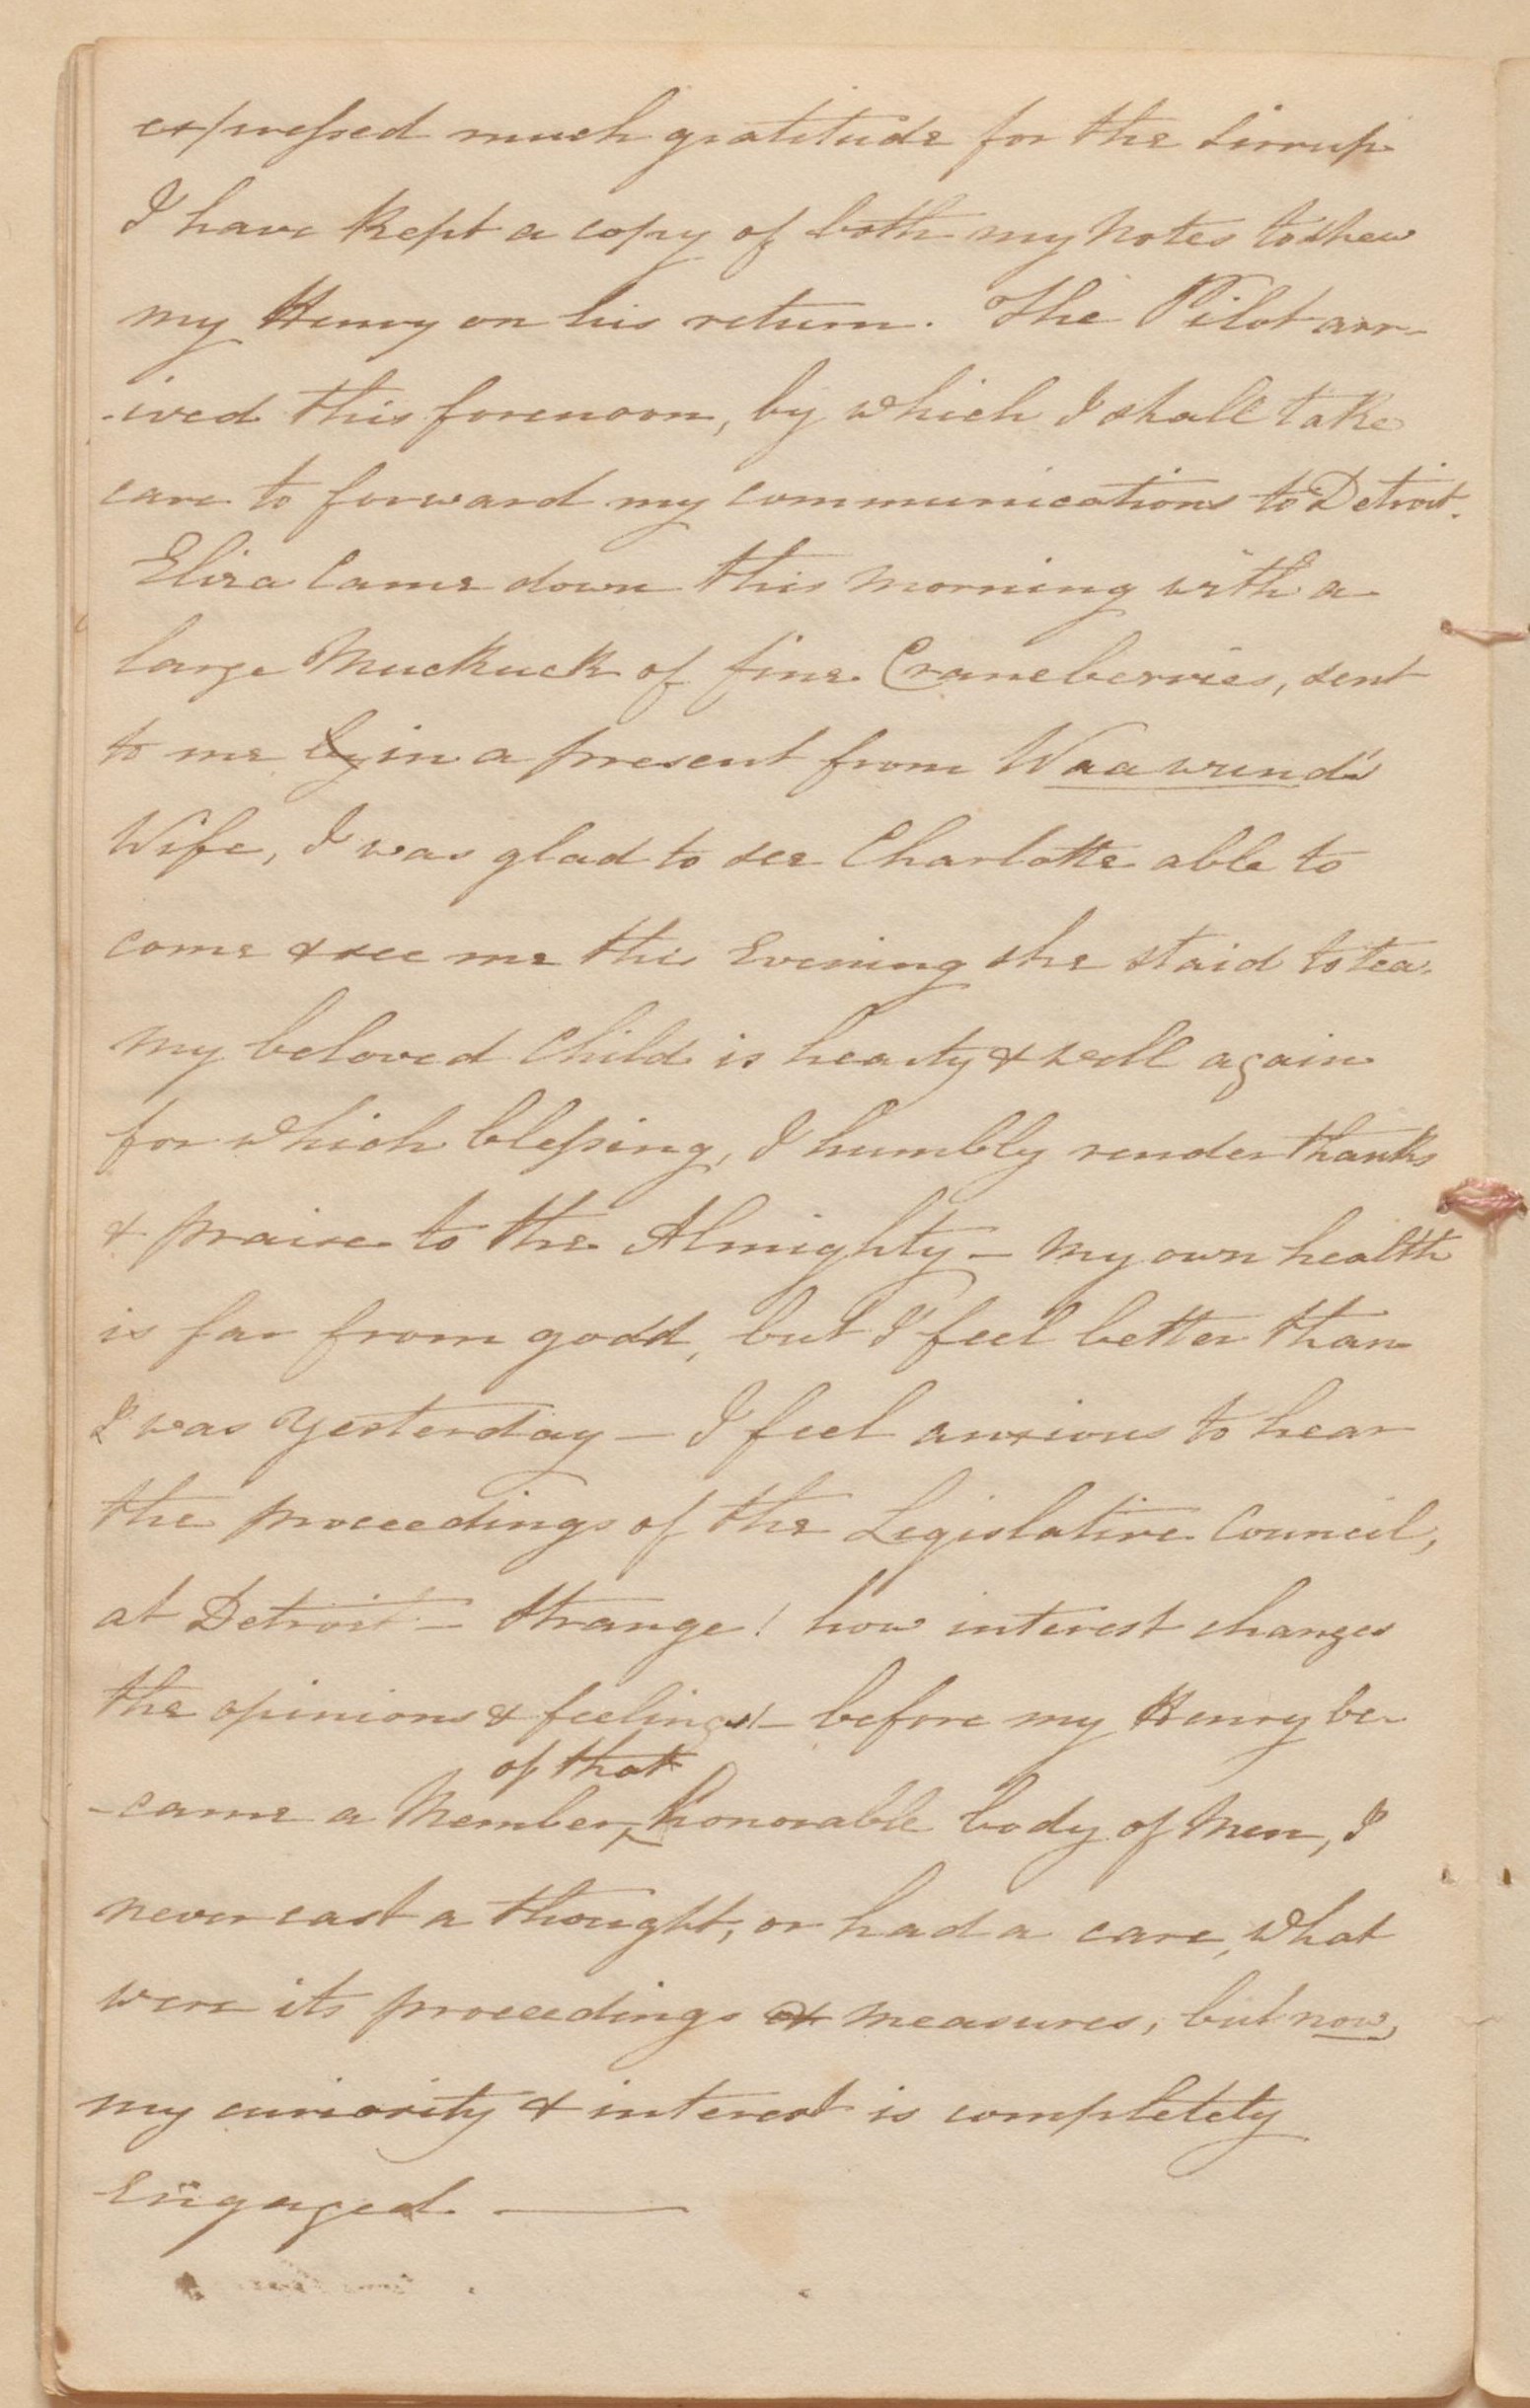 expressed much gratitude for the Sirrup
I have Kept a copy of both my notes to shew
my Henry on his return. The Pilot arr-
-ived this forenoon, by which I shall take
care to forward my communications to Detroit.
Eliza Came down this morning with a
large Muckuck of fine Craneberries, sent
to me by in a present from Waawund's
Wife, I was glad to see Charlotte able to
come & see me this Evening she staid to tea.
My beloved Child is hearty & well again
for which blessing, I humbly render thanks
& praise to the Almighty – My own health
is far from good, but I feel better than
I was Yesterday – I feel anxious to hear
the proceedings of the Legislative Council,
at Detroit – Strange! how interest changes
the opinions & feelings! – before my Henry be-
of that
-came a Member, honorable body of Men, I
never cast a thought, or had a care, what
were its proceedings or measures, but now,
my curiosity & interest is completety
Engaged. —